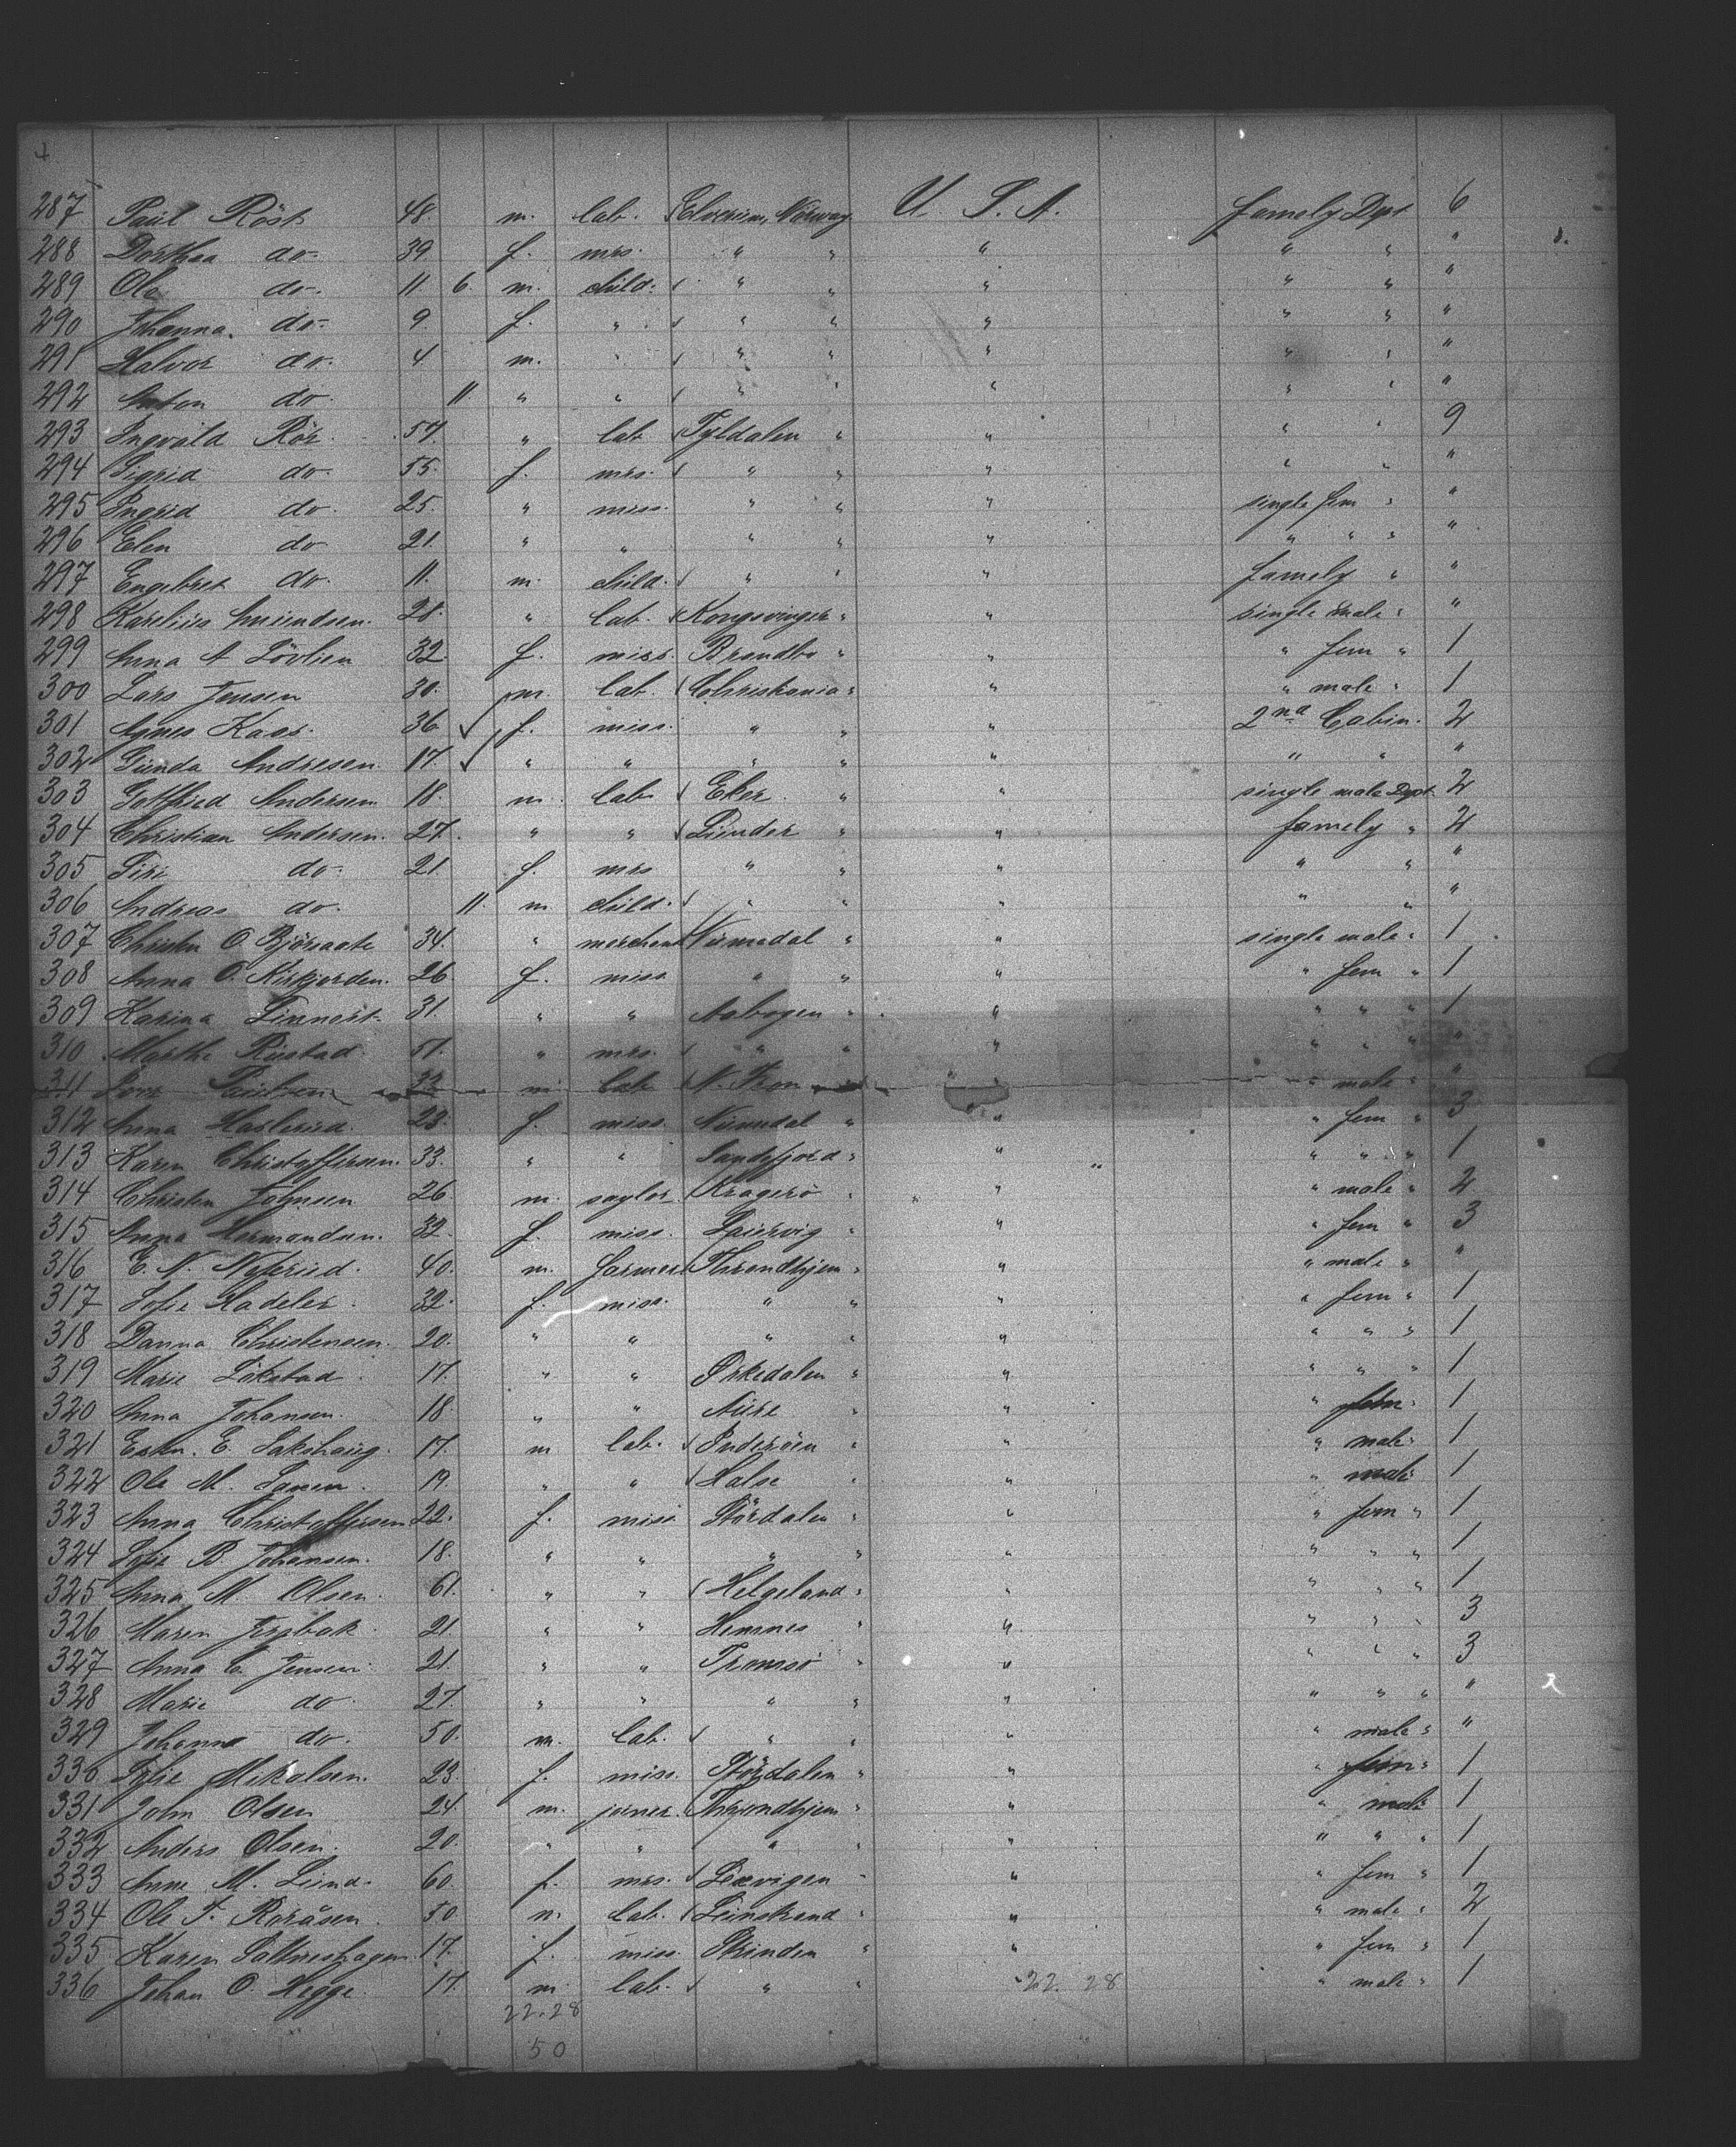 4
287 Paul Röst 48. m. lab. Elverum, Norway U. S. A. famely Dpt 6
288 Dorthea do. 39. f. mrs. " " " " " "
289 Ole do. 11 6. m. child. " " " " " "
290 Johanna. do. 9. f. " " " " " " "
291 Halvor do. 4 m. " " " " " " "
292 Anton do. 11 " " " " " " " "
293 Ingvald Rör. 57. " lab. Tyldalen " " " " 9
294 Sigrid do. 55. f. mrs. " " " " " "
295 Ingrid do. 25. " miss. " " " single fem " "
296 Elen do 21. " " " " " " " " "
297 Engebret do. 11. m. child. " " " famely " "
298 Karelius Amundsen. 28. " lab. Kongsvinger " " single male " "
299 Anna A Lövlien 32. f. miss. Brandbo " " " fem " 1
300 Lars Jensen 30. m. lab. Christiania " " " male " 1
301 Agnes Kaas. 36 f. miss. " " " 2nd Cabin. 2
302 Gunda Andresen. 17. " " " " " " " "
303 Gottfried Andersen 18. m. lab. Eker " " single male Dpt. 2
304 Christian Andersen. 27. " " Lunder " " famely " 2
305 Siri do. 21. f. mrs " " " " " "
306 Andreas do. 11. m. child. " " " " " "
307 Christen O. 34. " merchant Numedal " " single male " 1
308 Anna O. Kirkjorden. 26. f. miss " " " " fem " 1
309 Karina 31. " " Aabogen " " " " " 1
310 Marthe Rustad. 51. " mrs. " " " " " " "
311 Paulsen 22 m. lab. N. Fron " " " male " "
312 Anna Hasleried. 23. f. miss. Numedal " " " fem " 3
313 Karen Christoffersen. 33. " " Sandefjord " " " " " 1
314 Christen Johnsen 26. m. saylor. Kragerö " " " male " 2
315 Anna Hermandsen. 32. f. miss. Laurvig " " " fem " 3
316 E. N. 40. m. farmer Throndhjem " " " male " "
317 Sofie Hadeler. 32. f. miss. " " " " fem " 1
318 Danna Christensen. 20. " " " " " " " " 1
319 Marie Lökstad. 17. " " Orkedalen " " " " " 1
320 Anna Johansen. 18. " " Aure " " " fem " 1
321 E. Sakshaug. 17. m lab. Inderöen " " " male " 1
322 Ole M. 19. " " Halse " " " male 1
323 Anna Christoffersen 22. f. miss Stördalen " " " fem " 1
324 Sofie B. Johansen. 18. " " " " " " " " 1
325 Anna M. Olsen. 61. " " Helgeland " " " " " 1
326 Maren 21. " " Hemnes " " " " " 3
327 Anna C. Jensen. 21. " " Tromsö " " " " " 3
328 Marie do. 27. " " " " " " " " "
329 Johanna do. 50. m. lab. " " " " male " "
330 Sofie Mikalsen. 23. f. miss. Stördalen " " " fem " 1
331 John Olsen 24. m. joiner. Throndhjem " " " male 1
332 Anders Olsen. 20. " " " " " " " " 1
333 Anne M. Lund. 60. f. mrs. Lexvigen " " " fem " 1
334 Ole T. Roråsen. 50 m. lab. Leinstrand " " " male " 2
335 Karen 17. f. miss. Strinden " " " fem " 1
336 Johan O. Hegge. 17. m. lab. " " 22. 28 " male " 1
22.28
50